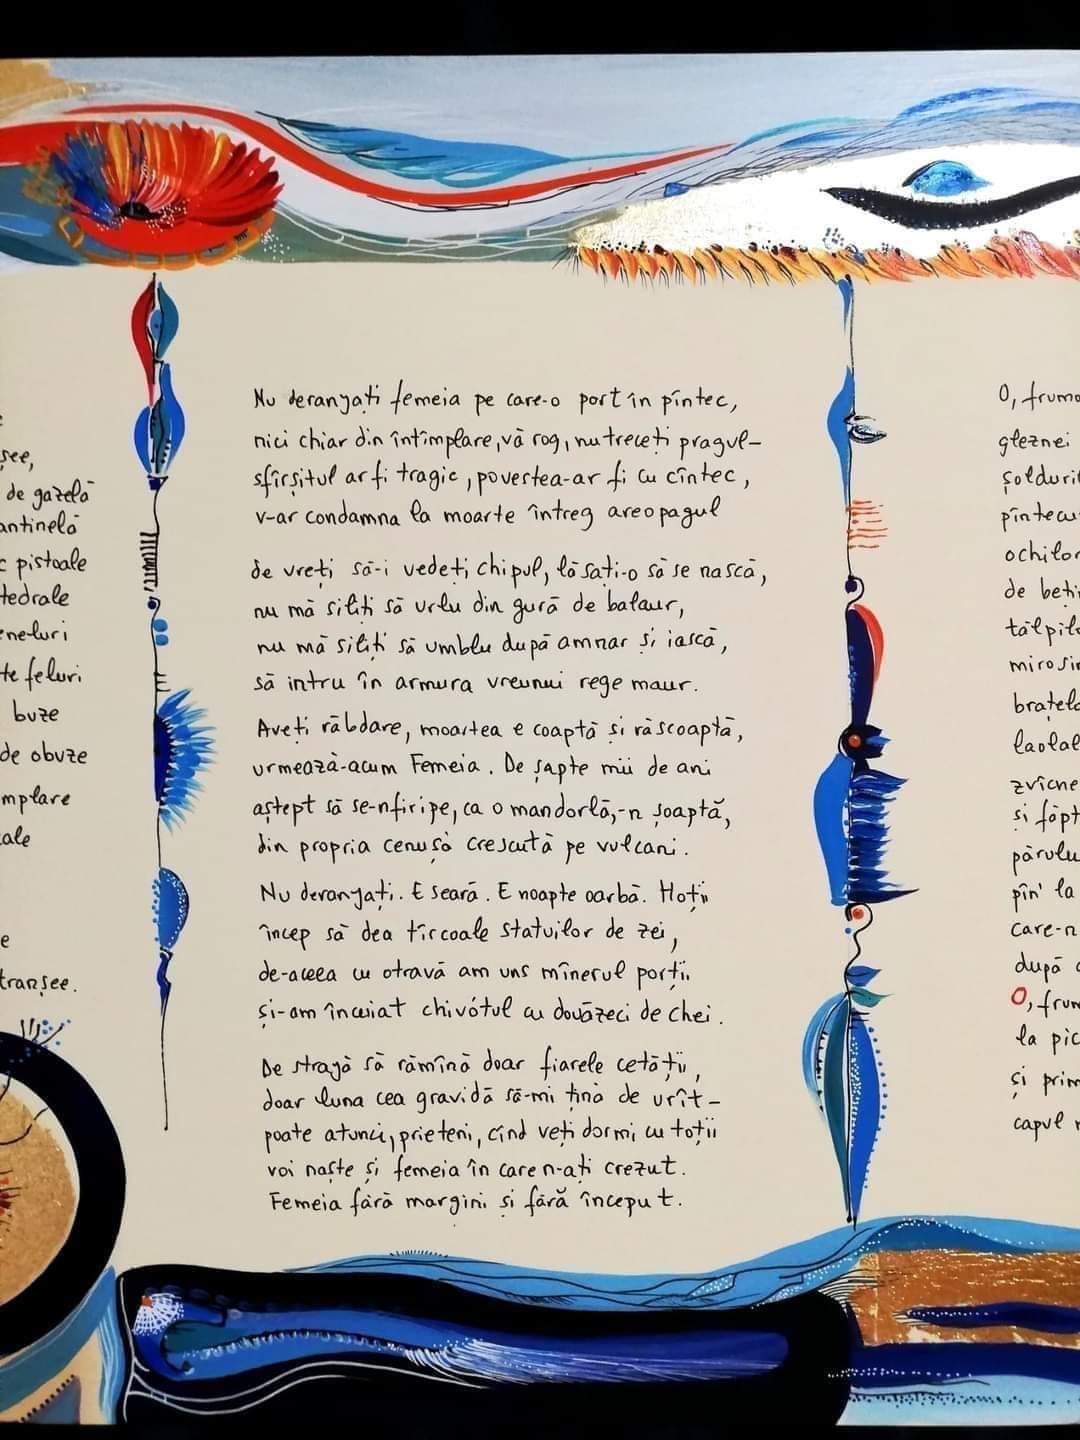 see,
de gazelă
antinelă
c pistoale
tedrale
ne-luri
te feluri
buze
de obuze
mplare
ale
e
tranșee.
Nu deranjați femeia pe care-o port în pîntec,
nici chiar din întîmplare, vă rog, nu treceți pragul–
sfîrșitul ar fi tragic, povestea-ar fi cu cîntec,
v-ar condamna la moarte întreg areopagul
de vreți să-i vedeți chipul, lăsați-o să se nască,
nu mă siliți să urlu din gură de balaur,
nu mă siliți să umblu după amnar și iască,
să intru în armura vreunui rege maur.
Aveți răbdare, moartea e coaptă și răscoaptă,
urmează-acum Femeia. De șapte mii de ani
aștept să se-nfiripe, ca o mandorlă,-n șoaptă,
din propria cenușă crescută pe vulcani.
Nu deranjați. E seară. E noapte oarbă. Hoții
încep să dea tîrcoale statuilor de zei,
de-aceea cu otravă am uns mînerul porții
și-am încuiat chivótul cu douăzeci de chei.
De strajă să rămînă doar fiarele cetății,
doar luna cea gravidă să-mi țină de urît–
poate atunci, prieteni, cînd veți dormi cu toții
voi naște și femeia în care n-ați crezut.
Femeia fără margini și fără început.
O, frumo
gleznei
șolduril
pîntecu
ochilor
de beți
tălpilo
mirosin
brațelo
laolal
zvîcne
și făpt
părulu
pîn' la
care-n
după c
O, frum
la pic
și prim
capul